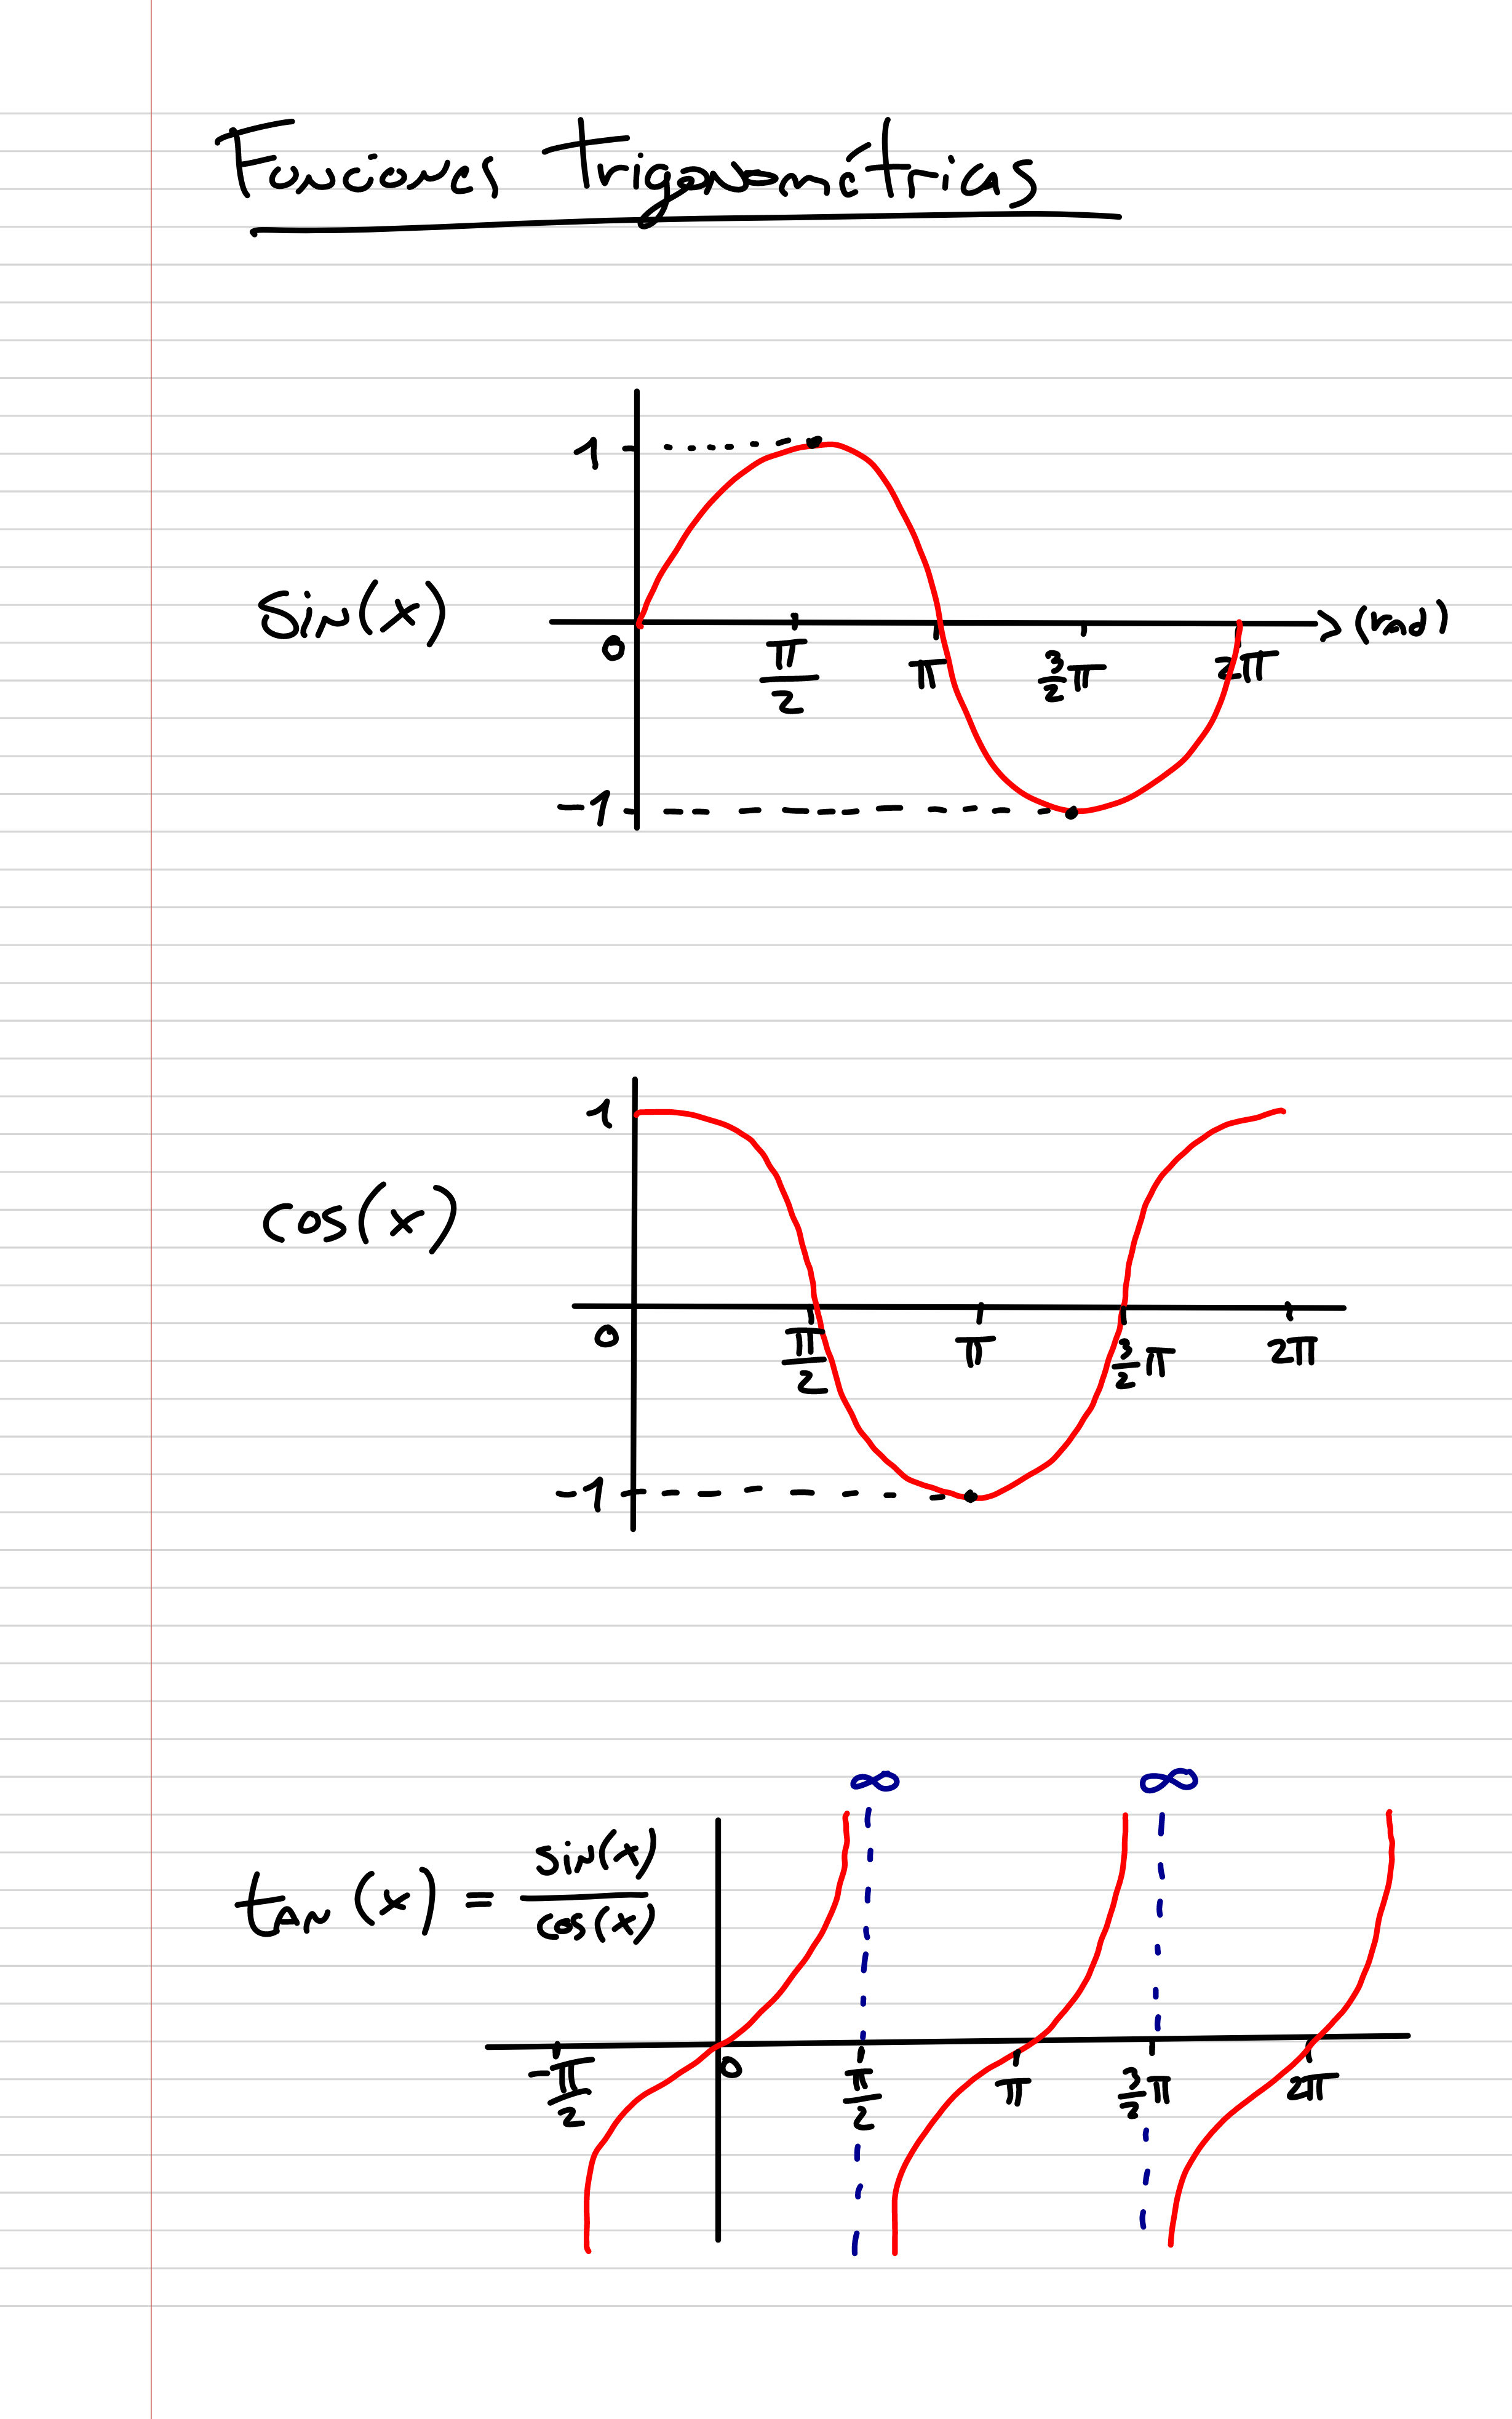 Funcionas trigonométricas
1
sin(x)
(rad)
0
π/2
π
3/2 π
2π
-1
1
cos(x)
0
π/2
π
3/2 π
2π
-1
∞ ∞
tan(x) = sin(x)/cos(x)
-π/2
0
π/2
π
3/2 π
2π